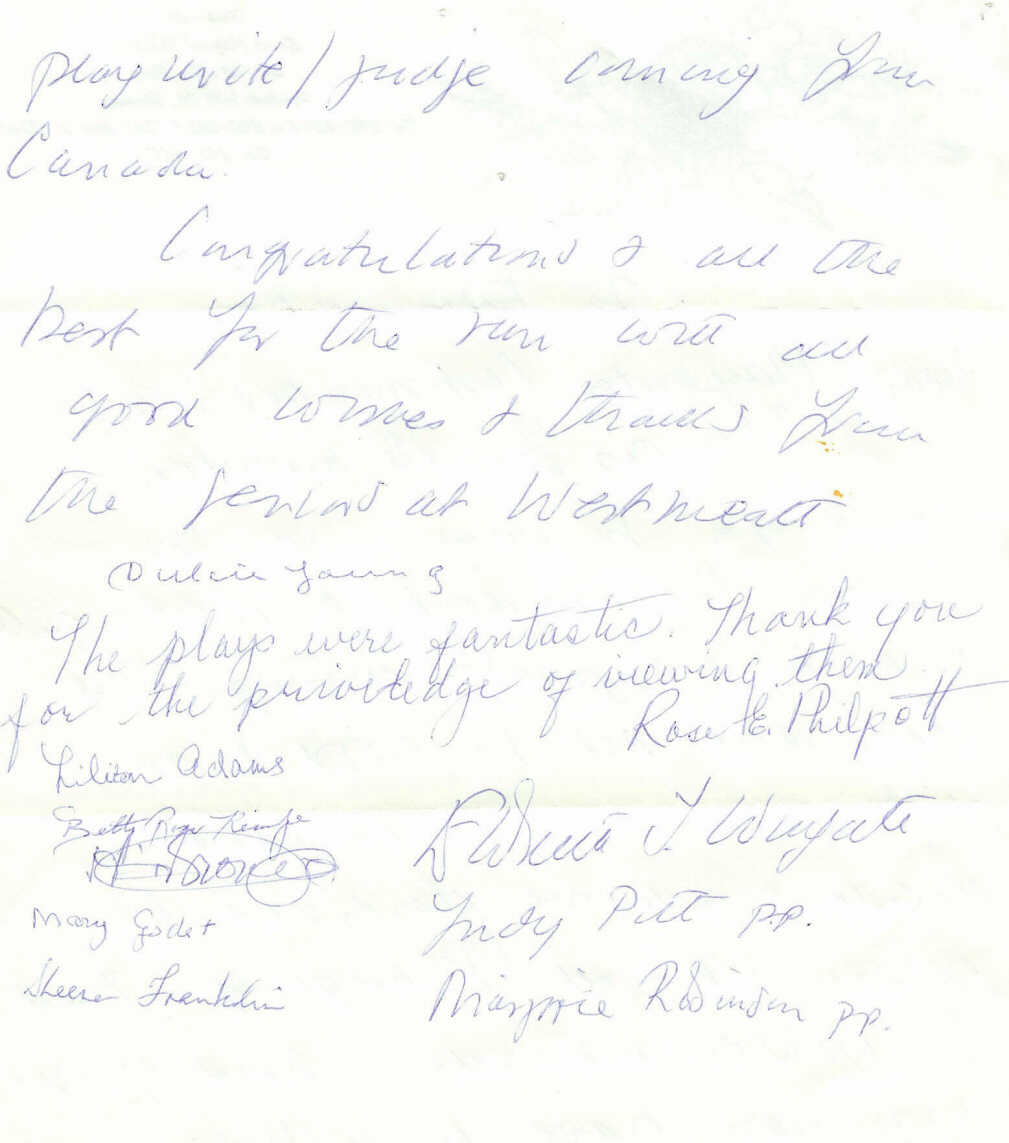 playwrite/judge coming from
Canada.
Congratulations & all the
best for the run with all
good wishes & thanks from
the seniors at Westmeath
Dulcie Young
The plays were fantastic. Thank you
for the priviledge of viewing them
Rose E. Philpott
Lilian Adams
Betty Kempe
T. Wingate
Mary Godet
Judy Pitt p.p.
Franklin
Marjorie Robinson pp.